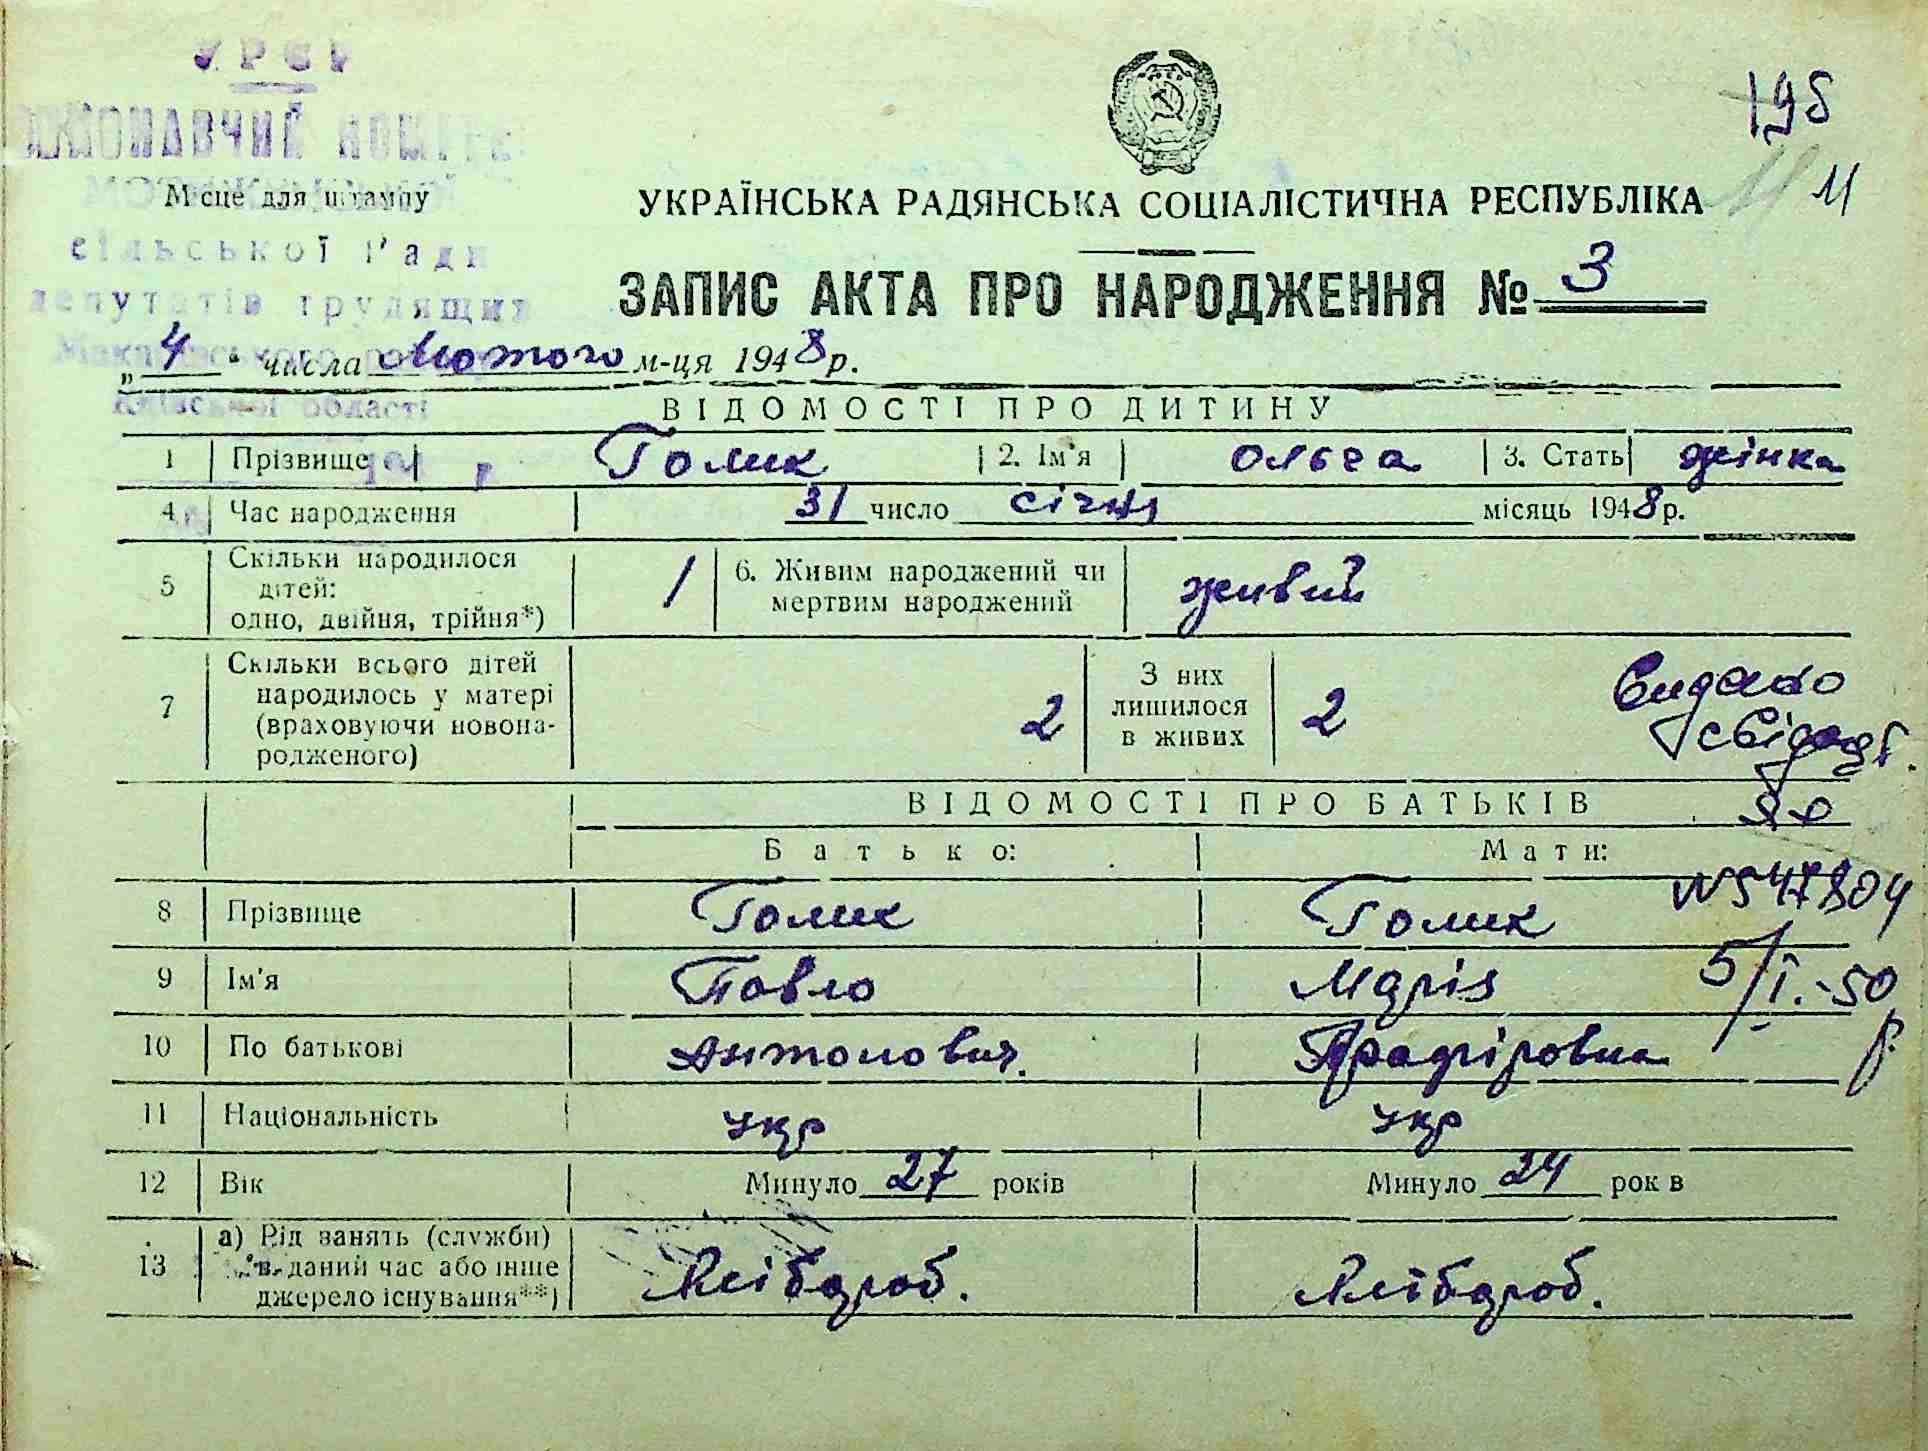 УРСР
ВИКОНАВЧИЙ КОМІТЕТ
Місце для штампу
сільської Ради
депутатів трудящих
Макарівського району
Київської області
195
11
УКРАЇНСЬКА РАДЯНСЬКА СОЦІАЛІСТИЧНА РЕСПУБЛІКА
ЗАПИС АКТА ПРО НАРОДЖЕННЯ № 3
„4“ числа Лютого м-ця 1948 р.
ВІДОМОСТІ ПРО ДИТИНУ
1 Прізвище Голик 2. Ім'я Ольга 3. Стать жінка
4 Час народження 31 число січня місяць 1948 р.
5 Скільки народилося дітей: одно, двійня, трійня*) 1 6. Живим народжений чи мертвим народжений живий
7 Скільки всього дітей народилось у матері (враховуючи новонародженого) 2 З них лишилося в живих 2
Видано
свідоцт.
ВІДОМОСТІ ПРО БАТЬКІВ
Батько: Мати:
N 547804
8 Прізвище Голик Голик
9 Ім'я Павло Марія
5/I.-50
р.
10 По батькові Антонович.
11 Національність укр укр
12 Вік Минуло 27 років Минуло 24 рок в
13 а) Рід занять (служби) в даний час або інше джерело існування**)